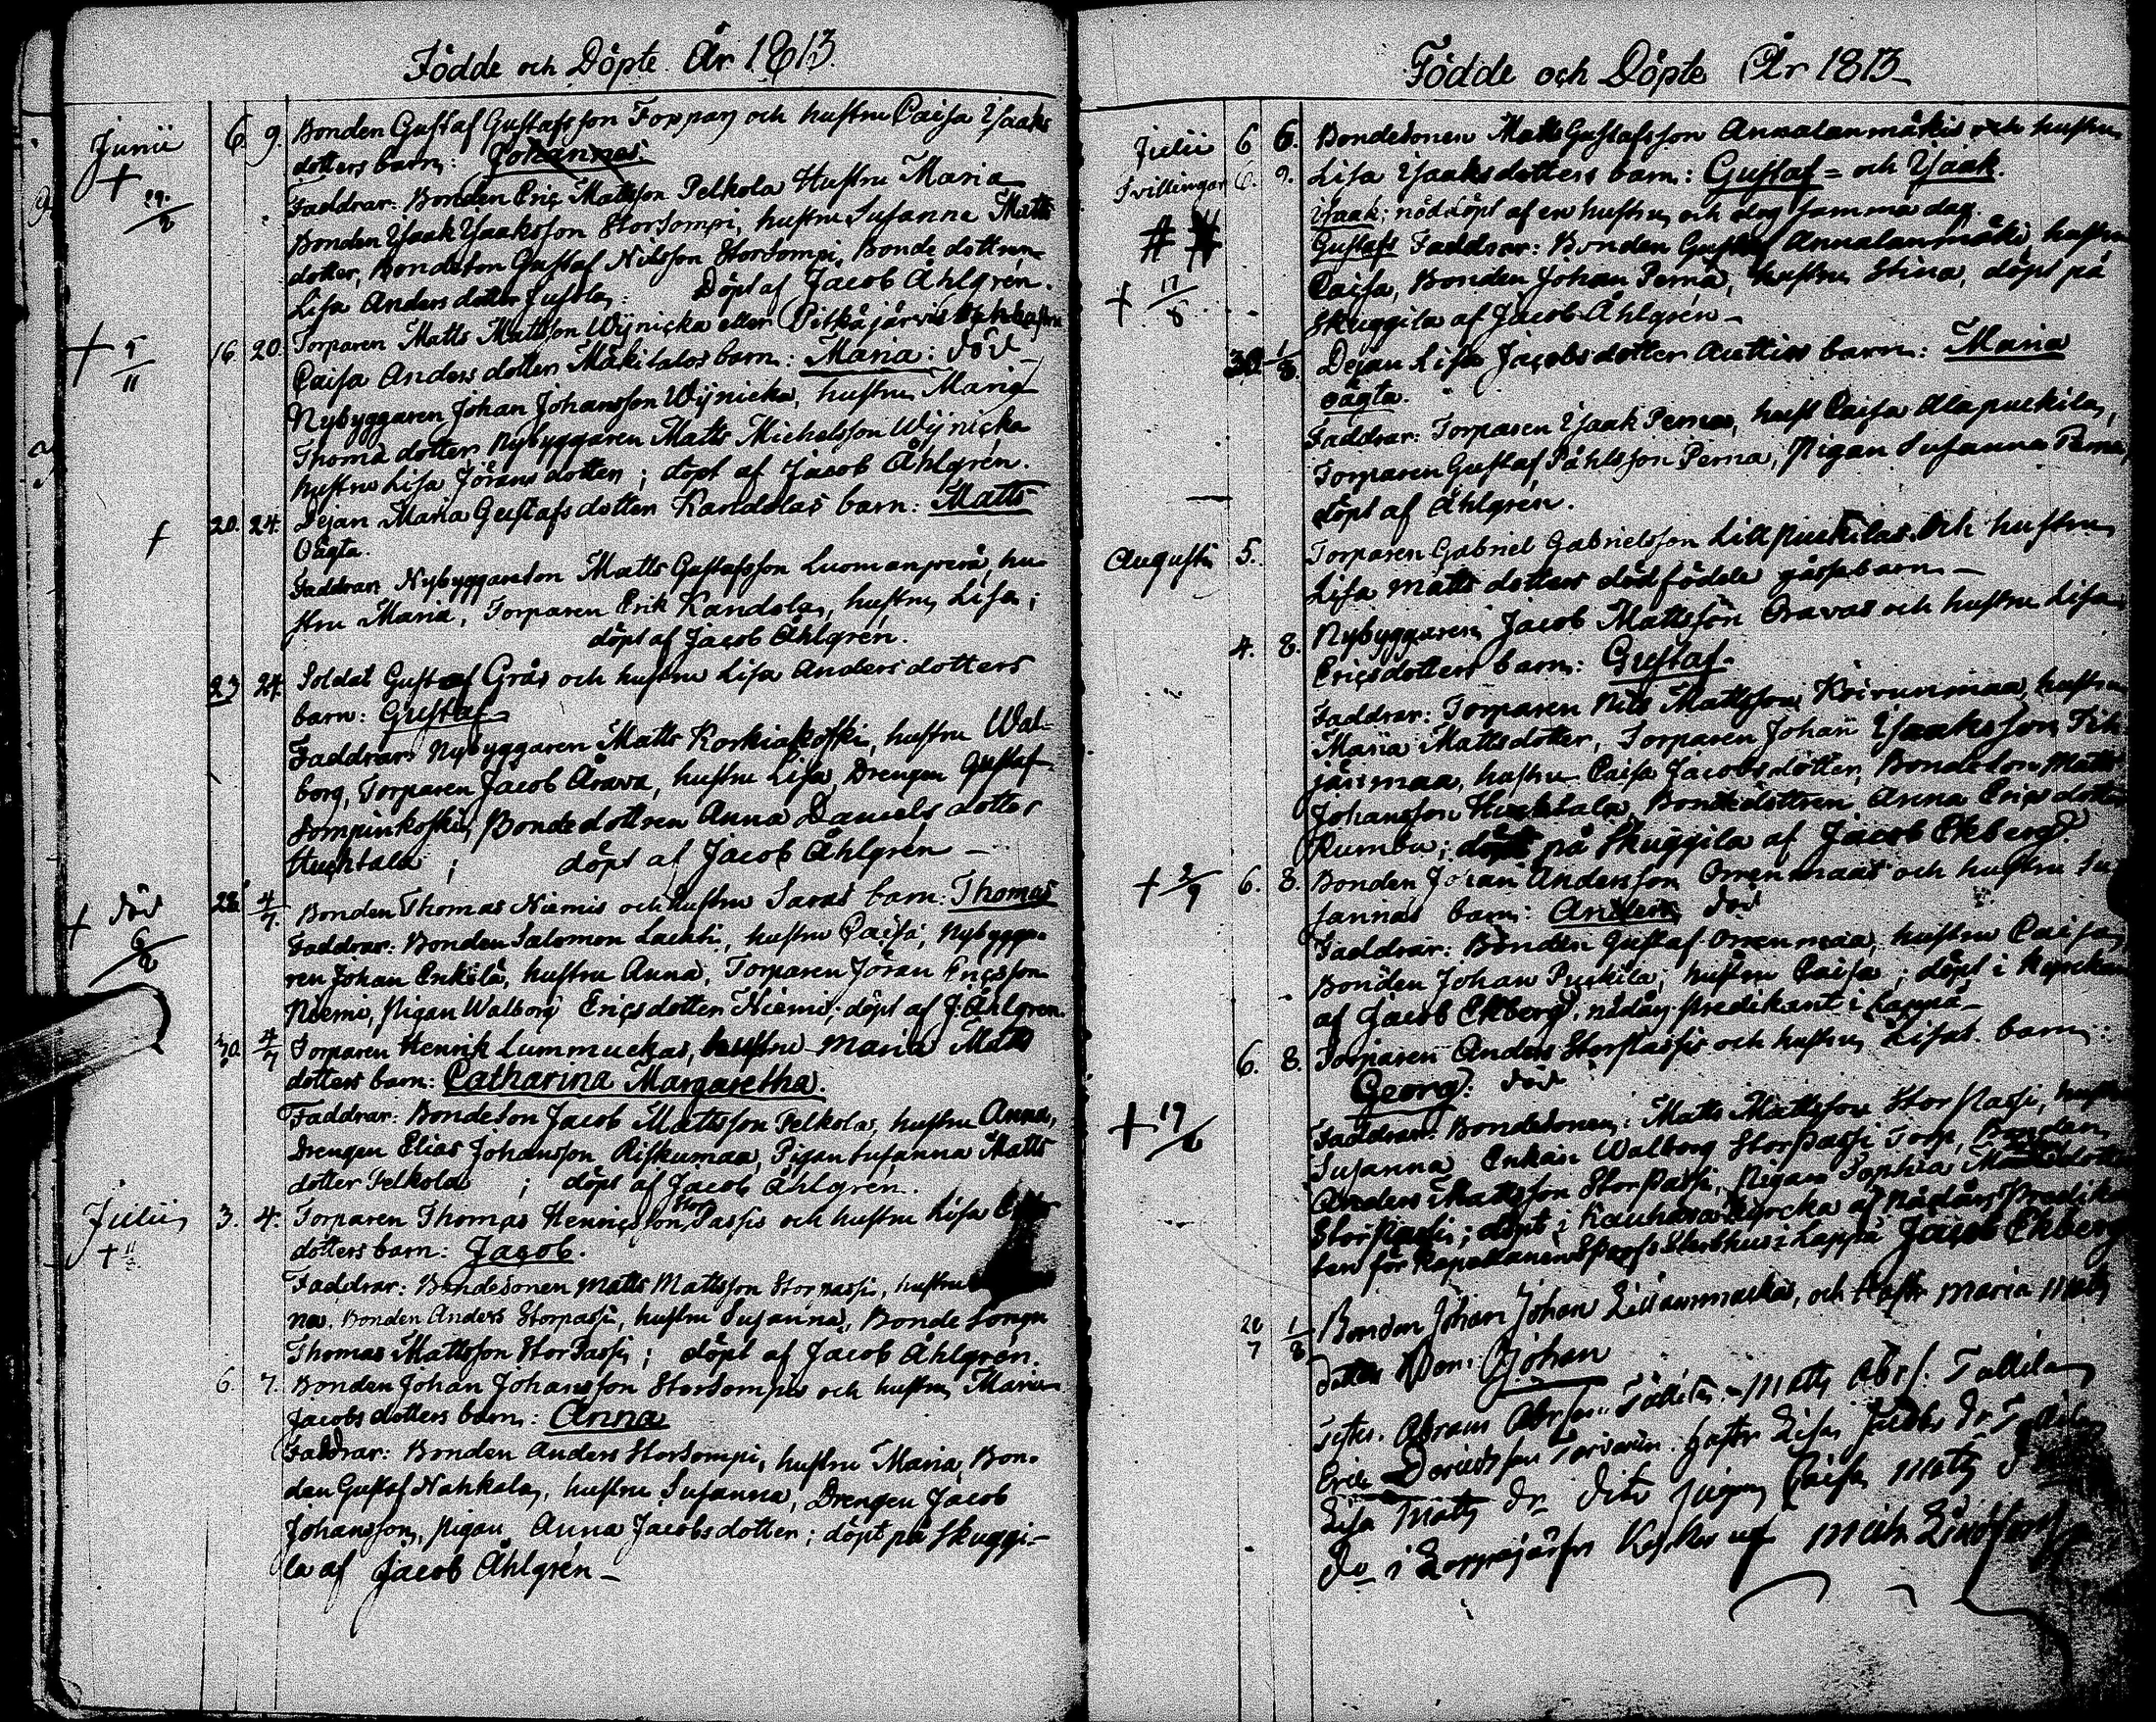 Födde och Döpte År 1813.
Junii 6. 9. Bonden Gustaf Gustafsson Foppan och hustru Caisa Ysaaks
dotters barn: Johannes.
+ 29/8
Faddrar: Bonden Eriç Mattsson Pelkola Hustru Maria
Bonden Ysaak Ysaaksson Storsompi, hustru Susanna Matts
dotter, Bondeson Gustaf Nilsson Storsompi, Bonde dottren
Lisa Anders dotter Jussila: Döpt af Jacob Åhlgrén.
+ 5/11 16. 20. Torparen Matts Mattsson Wijniçka eller Pitkäjärvis och hustru
Caisa Anders dotters Mäkitalos barn: Maria: död
Nybyggaren Johan Johansson Wijnicka, hustru Maria
Thomä dotter, Nybyggaren Matts Michelsson Wijniçka
hustru Lisa Jörans dotter; döpt af Jacob Åhlgrén.
+ 20. 24. Dejan Maria Gustafs dotter Kandolas barn: Matts
Oägta.
Faddrar Nybyggareson Matts Gustafsson Luomanperä, hu-
stru Maria, Torparen Erik Kandola, hustru Lisa;
döpt af Jacob Åhlgrén.
23 24. Soldat Gustaf Grås och hustru Lisa Anders dotters
barn: Gustaf
Faddrar: Nybyggaren Matts Korkiakoski, hustru Wal-
borg, Torparen Jacob Årava, hustru Lisa, Drengen Gustaf
Sompinkoski, Bonde dottren Anna Daniels dotter
Huchtala; döpt af Jacob Åhlgrén —
+ död 6/8 28. 4/7. Bonden Thomas Niemis och hustru Saras barn: Thomas
Faddrar: Bonden Salomon Lachti, hustru Caisa, Nybygga-
ren Johan Enkilä, hustru Anna, Torparen Jöran Eriçsson
Niemi, Pigan Walborg Eriçsdotter Niemi; döpt af J. Åhlgren.
30. 4/7 Torparen Henrik Lummuckas, hustru Maria Matts
dotters barn: Catharina Margaretha.
Faddrar: Bondeson Jacob Mattsson Pelkola, hustru Anna,
Drengen Elias Johansson Riskumaa, Pigan Susanna Matts
dotter Pelkola; döpt af Jacob Åhlgrén.
Julii 3. 4. Torparen Thomas Henriçsson Stor Passis och hustru Lisa
dotters barn: Jacob.
Faddrar: Bondesonen Matts Mattsson Storpassi, hustru
na, Bonden Anders Storpassi, hustru Susanna, Bonde Songn
Thomas Mattsson StorPassi; döpt af Jacob Åhlgrén.
6. 7. Bonden Johan Johansson Storsompis och hustru Maria
Jacobs dotters barn: Anna
Faddrar: Bonden Anders Storsompi, hustru Maria, Bon-
den Gustaf Nahkala, hustru Susanna, Drengen Jacob
Johansson, Pigan Anna Jacobsdotter; döpt på Skuggi-
la af Jacob Åhlgrén —
Födde och Döpte År 1813
Julii 6 6. Bondesonen Matts Gustafsson Annalanmäkis och hustru
Tvillingar 6. 9. Lisa Ysaaksdotters barn: Gustaf = och Ysaak.
Ysaak; nöddöpt af en hustru och dog samma dag.
Gustafs Faddrar: Bonden Gustaf Annalanmäki, hustru
+ 17/8 Caisa, Bonden Johan Perna, hustru Stina, döpt på
Skuggila af Jacob Åhlgrén —
30. 1/8. Dejan Lisa Jacobsdotter Auttios barn: Maria
oägta.
Faddrar: Torparen Ysaak Pernas, hust Caisa Alapuckila,
Torparen Gustaf Påhlsson Perna, Pigan Susanna Perna,
döpt af Åhlgrén.
Augusti 5. Torparen Gabriel Gabrielsson Lillpuckilas och hustru
Lisa Matts dotters dödfödde gåssebarn —
4. 8. Nybyggaren Jacob Mattsson Oravas och hustru Lisa
Eriçsdotters barn: Gustaf.
Faddrar: Torparen Nils Mattsson Koivunmaa, hustru
Maria Mattsdotter, Torparen Johan Ysaaksson
järimaa, hustru Caisa Jacobsdotter, Bondeson Matts
Johansson Huchtala, Bondedottren Anna Eriçsdotter
Rumbu; döpt på Skuggila af Jacob Ekberg
+ 2/9 6. 8. Bonden Johan Andersson Orrenmaas och hustru Su
sannas barn: Anders död
Faddrar: Bonden Gustaf Orrenmaa, hustru Caisa,
Bonden Johan Puckila, hustru Caisa; döpt i
af Jacob Ekberg, nådårspredikant i Lappå —
6. 8. Torparen Anders Storpassis och hustru Lisas barn:
Georg: död
+ 19/ Faddrar: Bondesonen: Matts Mattsson Stor Passi, hustru
Susanna Enkan Walborg StorPassi Torp, Bonden
Anders Mattsson StorPassi, Pigan Sophia
StorPassi; döpt i Kauhava kyrcka af Nådårs Predikan
ten för Kapellanen Sterbhus i Lappå Jacob Ekberg
20/7 1/8 Bonden Johan Johan och hustr Maria Matts
dotters Barn: Johan
Testes. Abram Abrson Tallila, Matts Abrs. Tallila
Eric hustr Lisa Jacobs dr
Lisa Matts dr dito pigan Caisa Matts
do i Lappajärfvi